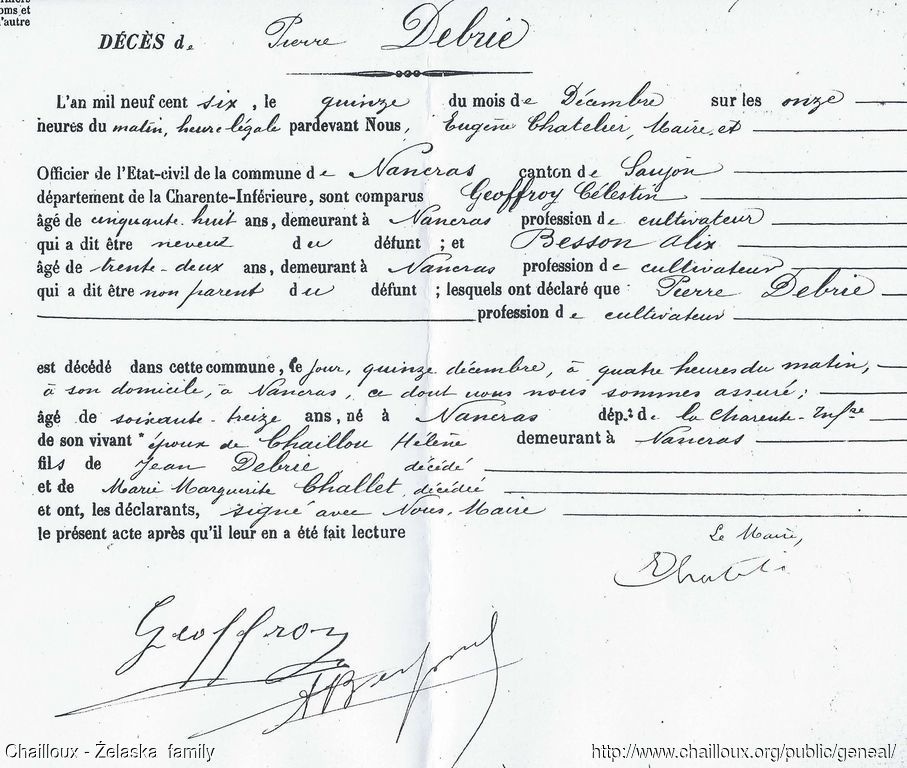 oms et
l'autre
DÉCÈS de Pierre Debrie
L'an mil neuf cent six, le quinze du mois de Décembre sur les onze
heures du matin, heure légale pardevant Nous, Eugène Chatelier, Maire et
Officier de l'Etat-civil de la commune de Nancras canton de Saujon
département de la Charente-Inférieure, sont comparus Geoffroy Célestin
âgé de cinquante-huit ans, demeurant à Nancras profession de cultivateur
qui a dit être neveu du défunt ; et Besson Alix
âgé de trente-deux ans, demeurant à Nancras profession de cultivateur
qui a dit être non parent du défunt ; lesquels ont déclaré que Pierre Debrie
profession de cultivateur
est décédé dans cette commune, le jour, quinze décembre, à quatre heures du matin,
à son domicile, à Nancras, ce dont nous nous sommes assuré ;
âgé de soixante-treize ans, né à Nancras dép.t de la Charente-Infre
de son vivant * époux de Chaillou Hélène demeurant à Nancras
fils de Jean Debrie décédé
et de Marie Marguerite Challet, décédée
et ont, les déclarants, signé avec Nous, Maire
le présent acte après qu'il leur en a été fait lecture
Le Maire,
Geoffroy
Chailloux - Żelaska family
http://www.chailloux.org/public/geneal/